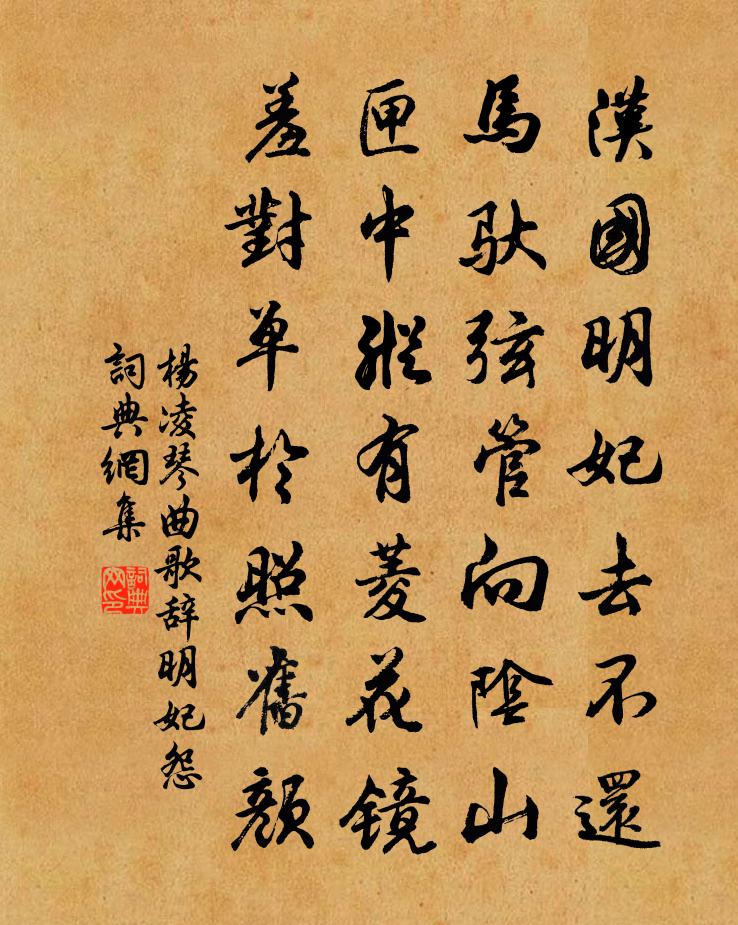 漢國明妃去不還
馬馱弦管向陰山
匣中縱有菱花镜
羞對单於照舊顏
楊凌琴曲歌辞明妃怨
詞典網集
詞典网印